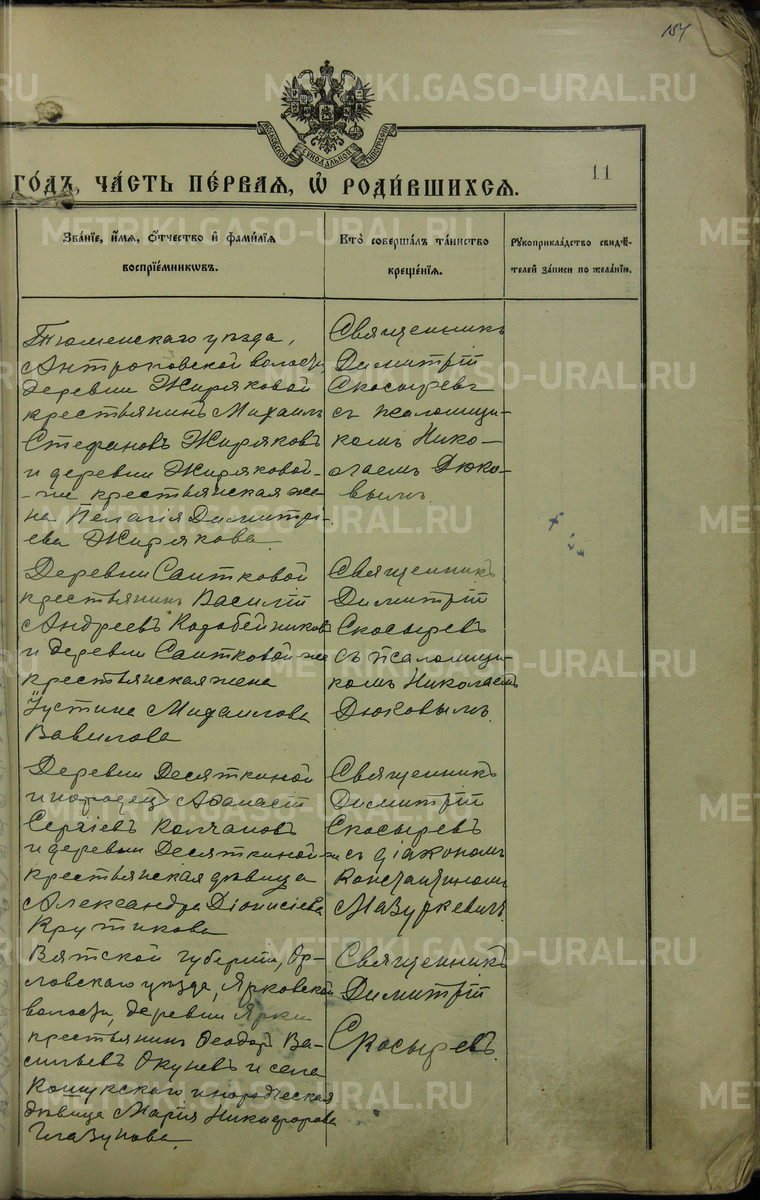 154
МОСКОВСКОЙ СѴНОДАЛЬНОЙ ТИПОГРАФІИ
ГО́ДЪ, ЧА́СТЬ ПЕ́РВАЯ, Ѡ РОДИ́ВШИХСЯ.
11
Зва́нїе, и́мя, ѻ҆́тчество и҆ фами́лїя
воспрїе́мникѡвъ.
Кто̀ соверша́лъ та́инство
креще́нїя.
Рꙋкоприкла́дство свидѣ́-
телей за́писи по жела́нїю.
Тюменскаго уѣзда,
Антроповской волости
деревни Жиряковой
крестьянинъ Михаилъ
Стефановъ Жиряковъ
и деревни Жиряковой-
-же крестьянская же-
на Пелагія Димитрі-
ева Жирякова
Священникъ
Димитрій
Скосыревъ
съ псаломщи-
комъ Нико-
лаемъ Дюко-
вымъ.
Деревни Саитковой
крестьянинъ Василій
Андреевъ Коробейниковъ
и деревни Саитковой-же
крестьянская жена
Іустина Михаилова
Вавилова
Священникъ
Димитрій
Скосыревъ
съ псаломщи-
комъ Николаемъ
Дюковымъ.
Деревни Десяткиной
инородецъ Аѳанасій
Сергіевъ Колчановъ
и деревни Десяткиной-же
крестьянская дѣвица
Александра Діонисіева
Крутикова
Священникъ
Димитрій
Скосыревъ
съ діакономъ
Константиномъ
Мазуркевичъ
Вятской губерніи, Ор-
ловскаго уѣзда, Ярковской
волости, деревни Ярки
крестьянинъ Ѳеодоръ Ва-
сильевъ Окуневъ и села
Кошукскаго инородческая
дѣвица Марія Никифорова
Глазунова
Священникъ
Димитрій
Скосыревъ.
METRIKI.GASO-URAL.RU